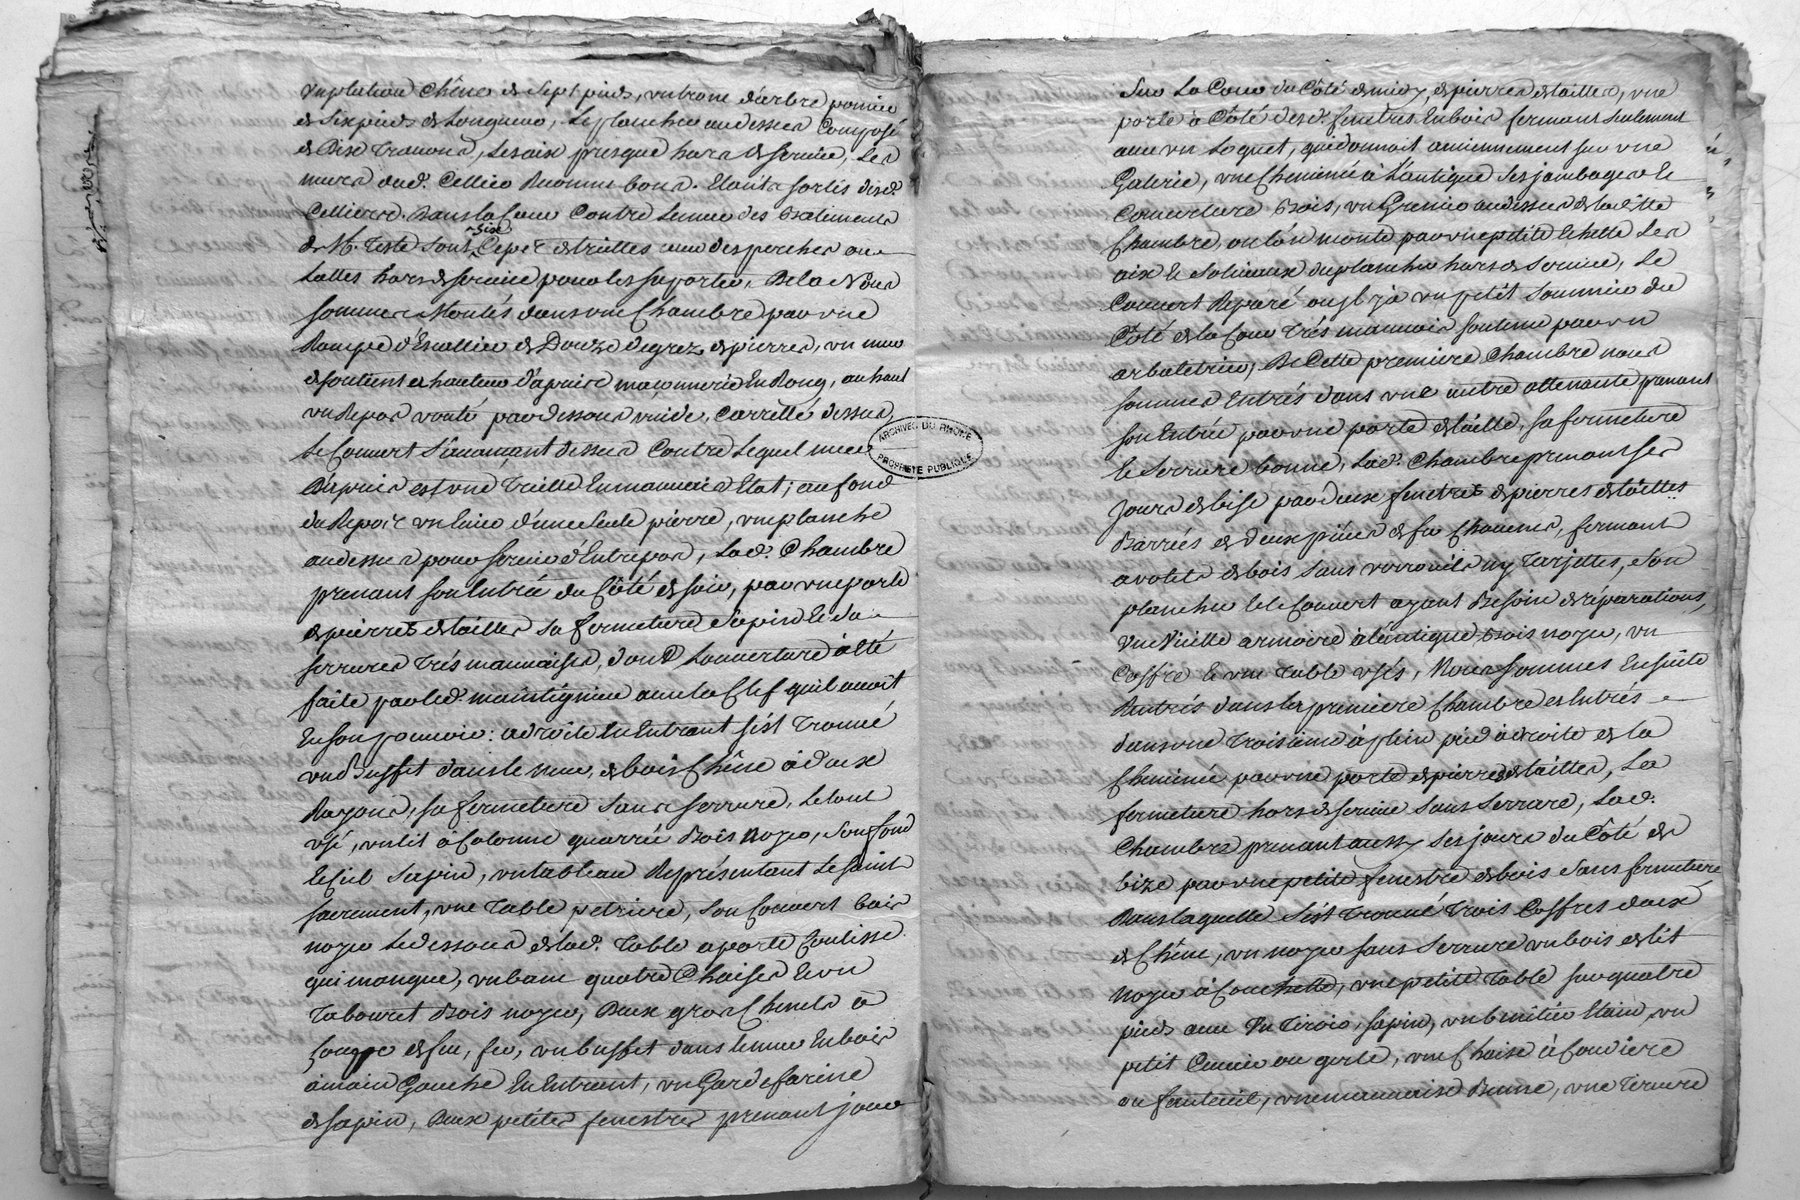 un plateau Chêne de Sept pieds, un trone d'arbre pomier
de Six pieds de Longueur, Le plancher au dessus Composé
de Dix Travons, Les aix presque hors de service, Les
murs dud. Cellier Reconnus bons. Etants sortis desd.
Celliers. Dans la Cour Contre Le mur des Batiments
de M. Teste Sont six Ceps de treilles avec des perches ou
Lattes hors de service pour les suporter, De la Nous
sommes Montés dans une Chambre par une
Rampe d'Escallier de Douze degrez de pierres, un mur
de soutient et hauteur d'apuis de maçonnerie En Rong, au haut
un Repos vouté par dessous vuide, Carrellé dessus,
Le Couvert S'avançant dessus Contre Lequel mur
D'apuis est une Treille En mauvais Etat; au fond
du Repos un Evier d'une Seule pierre, une planche
au dessus pour servir d'Entrepos, Lad. Chambre
prenant son Entrée du Côté de soir, par une porte
de pierres de tailles sa fermeture Sapin Et sa
serrures très mauvaises, dont L'ouverture à Eté
faite par led. maintignieu avec la Clef qu'il avoit
En son pouvoir: a droite En Entrant s'est Trouvé
un Buffet dans le mur, de bois Chêne à deux
Rayons, sa fermeture Sans serrure, Le tout
usé, un lit à Colonne quarrée Bois noyer, son fond
Le Ciel Sapin, un tableau Représentant Le Saint
sacrement, une Table petriere, son Couvert bois
noyer Le dessous de lad. Table a porte Coulisse
qui manque, un banc quatre Chaises Et un
Tabouret Bois noyer, Deux gros Chenets à
Coupe de feu, fer, un buffet dans le mur En bois
à main Gauche En Entrant, un Garde farine
de sapin, Deux petites fenestres prenant jour
ARCHIVES DU RHONE
PROPRIETE PUBLIQUE
Sur La Cour du Côté de midy, de pierres de tailles, une
porte à Côté desd. fenetres En bois fermant Seulement
avec un Loquet, qui donnoit anciennement sur une
Galerie, une Cheminée à L'antique Ses jambages et
Couverture Bois, un Grenier au dessus de la ditte
Chambre, ou l'on monte par une petite Echelle Les
aix et Soliveaux du plancher hors de Service, Le
Couvert Reparé ou il y a un petit Sommier du
Côté de la Cour très mauvais soutenu par un
arbaletrier, De Cette premiere Chambre nous
sommes Entrés dans une autre attenante prenant
son Entrée par une porte de taille, sa fermeture
Et Serrure bonne, Lad. Chambre prenant ses
Jours de bise par deux fenetres de pierres de tailles
Barrées de deux pièces de fer Chacune, fermant
a volets de bois Sans verrouils ny Tarjettes, Son
plancher Et le Couvert ayant Besoin de réparations,
Une Vieille armoire à lantique Bois noyer, un
Coffre Et une Table usés, Nous sommes Ensuite
Rentrés dans la premiere Chambre et Entrés
dans une Troisieme à plein pied à droite de la
Cheminée par une porte de pierres de tailles, La
fermeture hors de service Sans Serrure, Lad.
Chambre prenant aussy Ses jours du Côté de
bize par une petite fenestre de bois Sans fermeture
Dans laquelle S'est trouvé Trois Coffres deux
de Chêne, un noyer sans Serrure un bois de lit
Noyer à Couchette, une petite Table sur quatre
pieds avec Un Tiroir, sapin, un benitier Etain, un
petit Cuvier ou gerle, une Chaise à Coudiere
ou fauteuil, une mauvaise Benne, une Terure